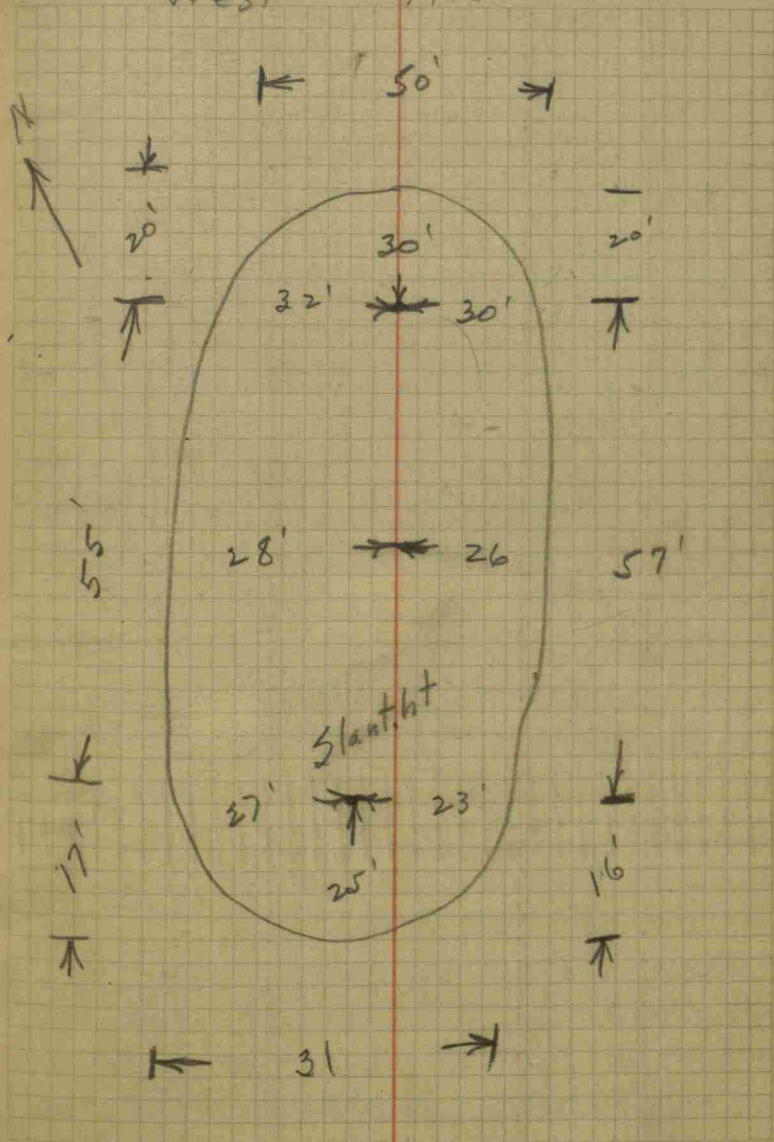 N
50'
20'
30'
20'
32'
30'
55'
28'
26
57'
Slant.ht
27'
23'
17'
25'
16'
31